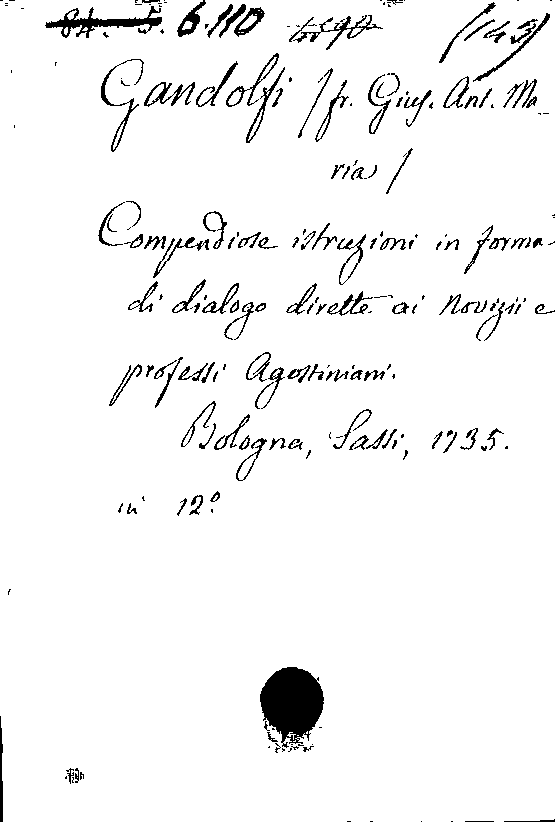 84. 5. 6.110 (143)
Gandolfi /fr. Gius. Ant. Ma_
ria /
Compendiose istruzioni in forma
di dialogo dirette ai Novizii e
professi Agostiniani.
Bologna, Sassi, 1735.
in 12º